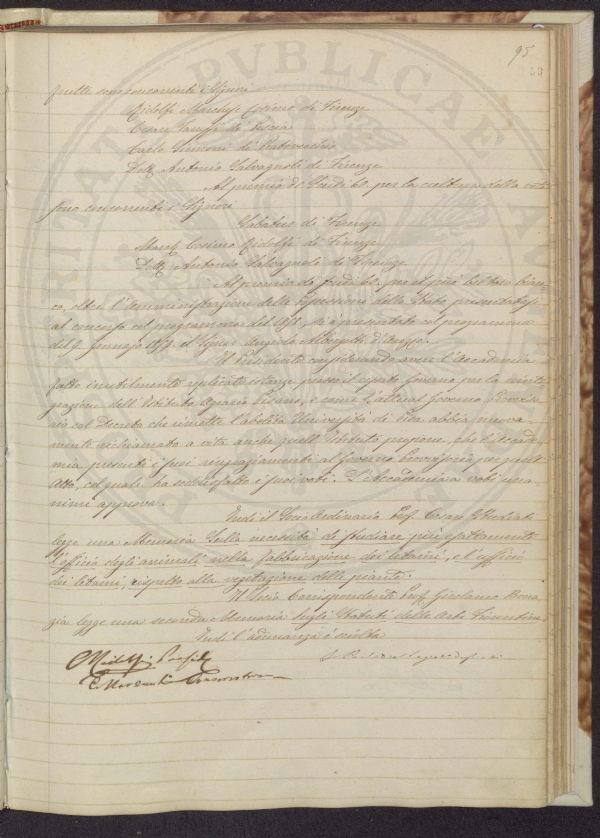 95
53
quelle sono concorrenti i Signori
Ridolfi Marchese Cosimo di Firenze
Cesare Tassi di Pescia
Carlo Simoni di Pratovecchio
Dott. Antonio Salvagnoli di Firenze
Al premio di Scudi 60. per la coltura della vite
sono concorrenti i Signori
Sabatier di Firenze
March. Cosimo Ridolfi di Firenze
Dott. Antonio Salvagnoli di Firenze
Al premio di scudi 60. per il più bel toro
co, oltre l'Amministrazione della dello Stato presentatasi
al concorso col programma del si è presentato col programma
del 9. Gennajo il Signor Angiolo d'Arezzo.
Il Presidente considerando aver l'Accademia
fatto inutilmente replicate istanze presso il cessato Governo per la
grazione dell'Istituto Agrario Pisano, e come l'attual Governo
rio col Decreto che rimette l'abolita Università di Pisa abbia nuova
mente richiamato a vita anche quell'Istituto propone, che l'Accade
mia presenti i suoi ringraziamenti al Governo Provvisorio per quell'
Atto, col quale ha sodisfatto i suoi voti. L'Accademia a voti una
nimi approva.
Indi il Socio Ordinario Prof. Cesare Studiati
legge una Memoria Sulla necessità di studiare più esattamente
l'officio degli animali nella fabbricazione dei letami, e l'ufficio
dei letami, rispetto alla vegetazione delle piante.
Il Socio Corrispondente Prof. Girolamo Bona
zia legge una seconda Memoria sugli Statuti delle Arti Fiorentine.
Indi l'adunanza è sciolta
C Ridolfi Presid.
PVBLICAE